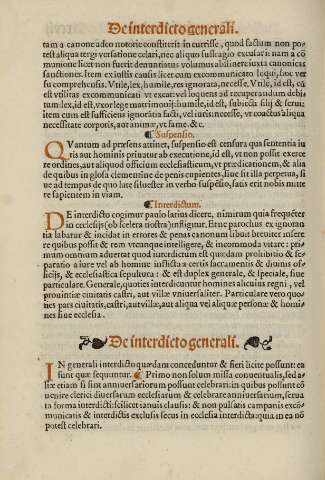 De interdicto generali.
tam a canone adeo notorie constiterit in curisse, quod factum non po-
test aliqua tergiuersatione celari, nec aliquo suffragio excusari: nam a cō
munione licet non fuerit denuntiatus volumus abstinere iuxta canonicas
sanctiones. Item ex iustis causis licet cum excommunicato loqui, hoc ver
su comprehensis. Vtile, lex, humile, res ignorata, necesse. Vtile, id est, cū
est vtilitas excommunicati vt exeat vel loquens ad recuperandum debi
tum: lex, id est, vxor lege matrimonij: humile, id est, subiecta filij & serui:
item cum est sufficiens ignorātia facti, vel iuris: necesse, vr coactus aliqua
necessitate corporis, aut animæ, vt fame. &c.
¶ Suspensio.
QVantum ad præsens attinet, suspensio est censura qua sententia iu
ris aut hominis priuatur ab executione, id est, vt non possit exerce
re ordines, aut aliquod officium ecclesiasticum, vt prædicationem, & alia
de quibus in glosa clemētine de penis cupientes, siue sit illa perpetua, si
ue ad tempus de quo late siluester in verbo suspēsio, satis erit nobis mitte
re sapientem in viam.
¶ Interdictum.
DE interdicto cogimur paulo latius dicere, nimirum quia frequēter
in ecclesijs (ob scelera nostra) infligitur. Et ne parochus ex ignoran
tia labatur & incidat in errores & penas canonum libuit breuiter insere
re quibus possit & rem vtcunque intelligere, & incommoda vitare: pri-
mum omnium aduertat quod iuterdictum est quædam prohibitio & se-
paratio a iure vel ab homine inflicta a certis sacramentis & diuinis of-
ficijs, & ecclesiastica sepultura: & est duplex generale, & speciale, siue
particulare. Generale, quoties interdicuntur homines alicuius regni, vel
prouintiæ ciuitatis castri, aut villæ vniuersaliter. Particulare vero quo-
ties pars ciuitatis, castri, aut villæ, aut aliqua vel aliquæ personæ & homi-
nes siue ecclesia.
De interdicto generali.
IN generali interdicto quædam conceduntur & fieri licite possunt: ea
sunt quæ sequuntur. ¶ Primo non solum missa conuentualis, sed a-
liæ etiam si sint anniuersariorum possunt celebrari: in quibus possunt cō
uenire clerici diuersarum ecclesiarum & celebrare anniuersarium, serua
ta forma interdicti: scilicet ianuis clausis: & non pulsatis campanis excō-
municatis & interdictis exclusis secus in ecclesia interdicta: quia in ea nō
potest celebrari.